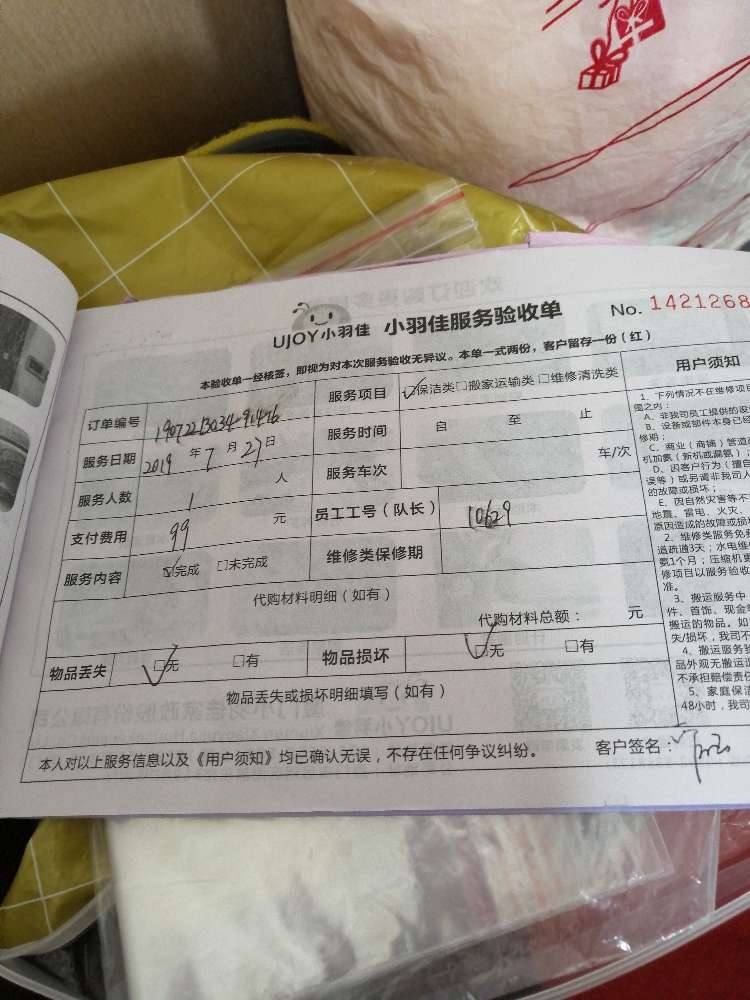 UJOY小羽佳 小羽佳服务验收单 No. 1421268
本验收单一经核签，即视为对本次服务验收无异议。本单一式两份，客户留存一份（红）
订单编号 服务项目 ☑保洁类□搬家运输类□维修清洗类
服务日期 2019 年 7 月 27日 服务时间 自 至 止
服务人数 1 人 服务车次 车/次
支付费用 99 元 员工工号（队长） 10629
服务内容 ☑完成 □未完成 维修类保修期
代购材料明细（如有）
代购材料总额： 元
物品丢失 ☑无 □有 物品损坏 ☑无 □有
物品丢失或损坏明细填写（如有）
本人对以上服务信息以及《用户须知》均已确认无误，不存在任何争议纠纷。 客户签名：
用户须知
1、下列情况不在维修项目
围之内：
A、非我司员工提供的
B、设备或部件本身已
修期；
C、商业（商铺）管道
机加氨（新机或漏氨）；
D、因客户行为（擅自
误等）或另请非我司人
的故障或损坏；
E、因自然灾害等不
地震、雷电、火灾、
原因造成的故障或损
2、维修类服务免费
道疏通3天；水电维
氨1个月；压缩机
修项目以服务验收
准。
3、搬运服务中
件、首饰、现金
搬运的物品。如
失/损坏，我司不
4、搬运服务
品外观无搬运
不承担赔偿责任
5、家庭保
48小时，我司